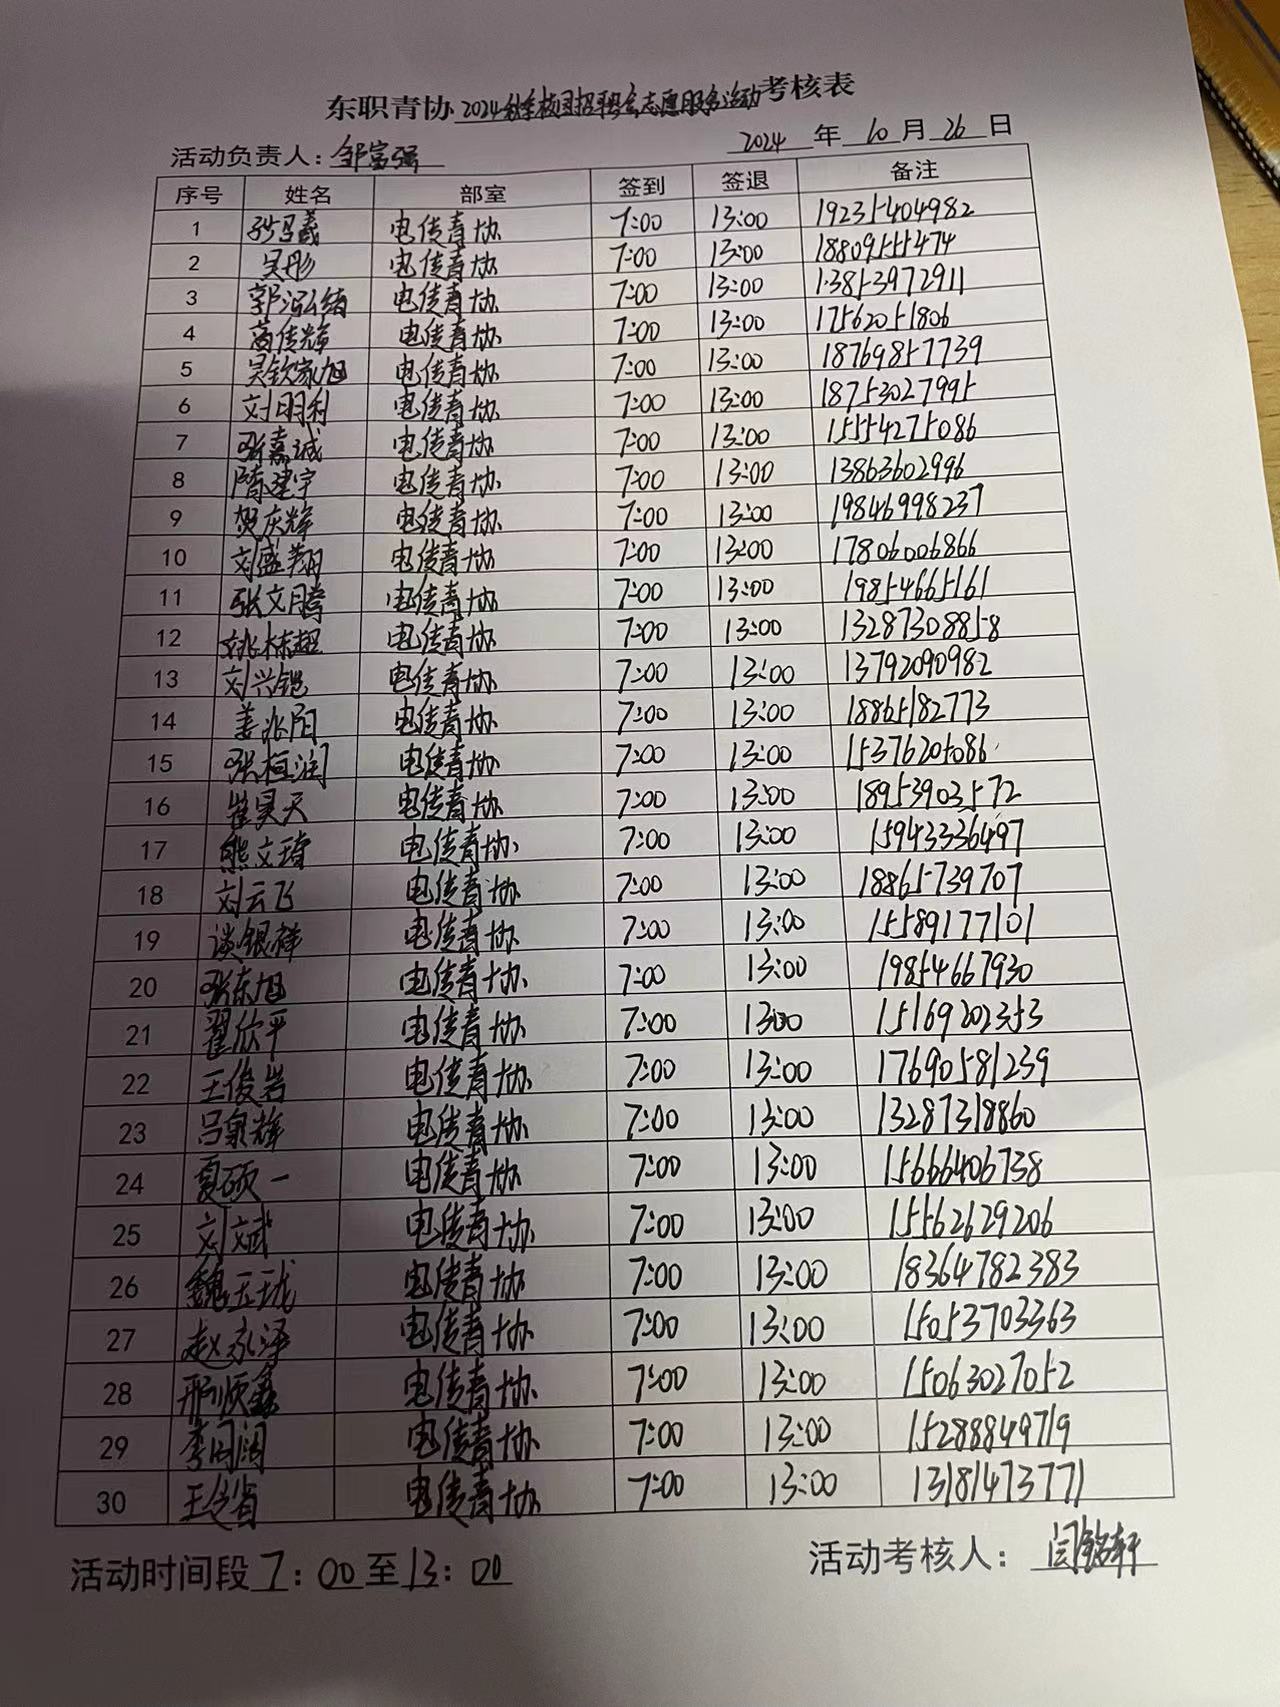 东职青协 2024秋季校园招聘会志愿服务活动 考核表
活动负责人：邹富强 2024 年 10 月 26 日
序号 姓名 部室 签到 签退 备注
1 电传青协 7:00 13:00 19235404982
2 吴彤 电传青协 7:00 13:00 18809555474
3 郭泓绪 电传青协 7:00 13:00 13853972911
4 高传辉 电传青协 7:00 13:00 17562051806
5 吴钦家旭 电传青协 7:00 13:00 18769857739
6 刘明利 电传青协 7:00 13:00 18753027995
7 张嘉诚 电传青协 7:00 13:00 15554275086
8 隋建宇 电传青协 7:00 13:00 13863602996
9 贺庆辉 电传青协 7:00 13:00 19846998237
10 刘盛翔 电传青协 7:00 13:00 17806006866
11 张文腾 电传青协 7:00 13:00 19854665161
12 姚栋超 电传青协 7:00 13:00 13287308858
13 刘兴铠 电传青协 7:00 13:00 13792090982
14 姜兆阳 电传青协 7:00 13:00 18865182773
15 张桓润 电传青协 7:00 13:00 15376205086
16 崔昊天 电传青协 7:00 13:00 18953903572
17 熊文琦 电传青协 7:00 13:00 15943336497
18 刘云飞 电传青协 7:00 13:00 18865739707
19 谈银祥 电传青协 7:00 13:00 15589177101
20 张东旭 电传青协 7:00 13:00 19854667930
21 翟欣平 电传青协 7:00 13:00 15169202353
22 王俊岩 电传青协 7:00 13:00 17690581239
23 吕泉辉 电传青协 7:00 13:00 13287318860
24 夏硕一 电传青协 7:00 13:00 15666406738
25 刘文斌 电传青协 7:00 13:00 15562629206
26 魏玉珑 电传青协 7:00 13:00 18364782383
27 赵永泽 电传青协 7:00 13:00 15053703363
28 邢顺鑫 电传青协 7:00 13:00 15063027052
29 李同阔 电传青协 7:00 13:00 15288849719
30 王传省 电传青协 7:00 13:00 13181473771
活动时间段 7：00 至 13：00 活动考核人：闫铭轩